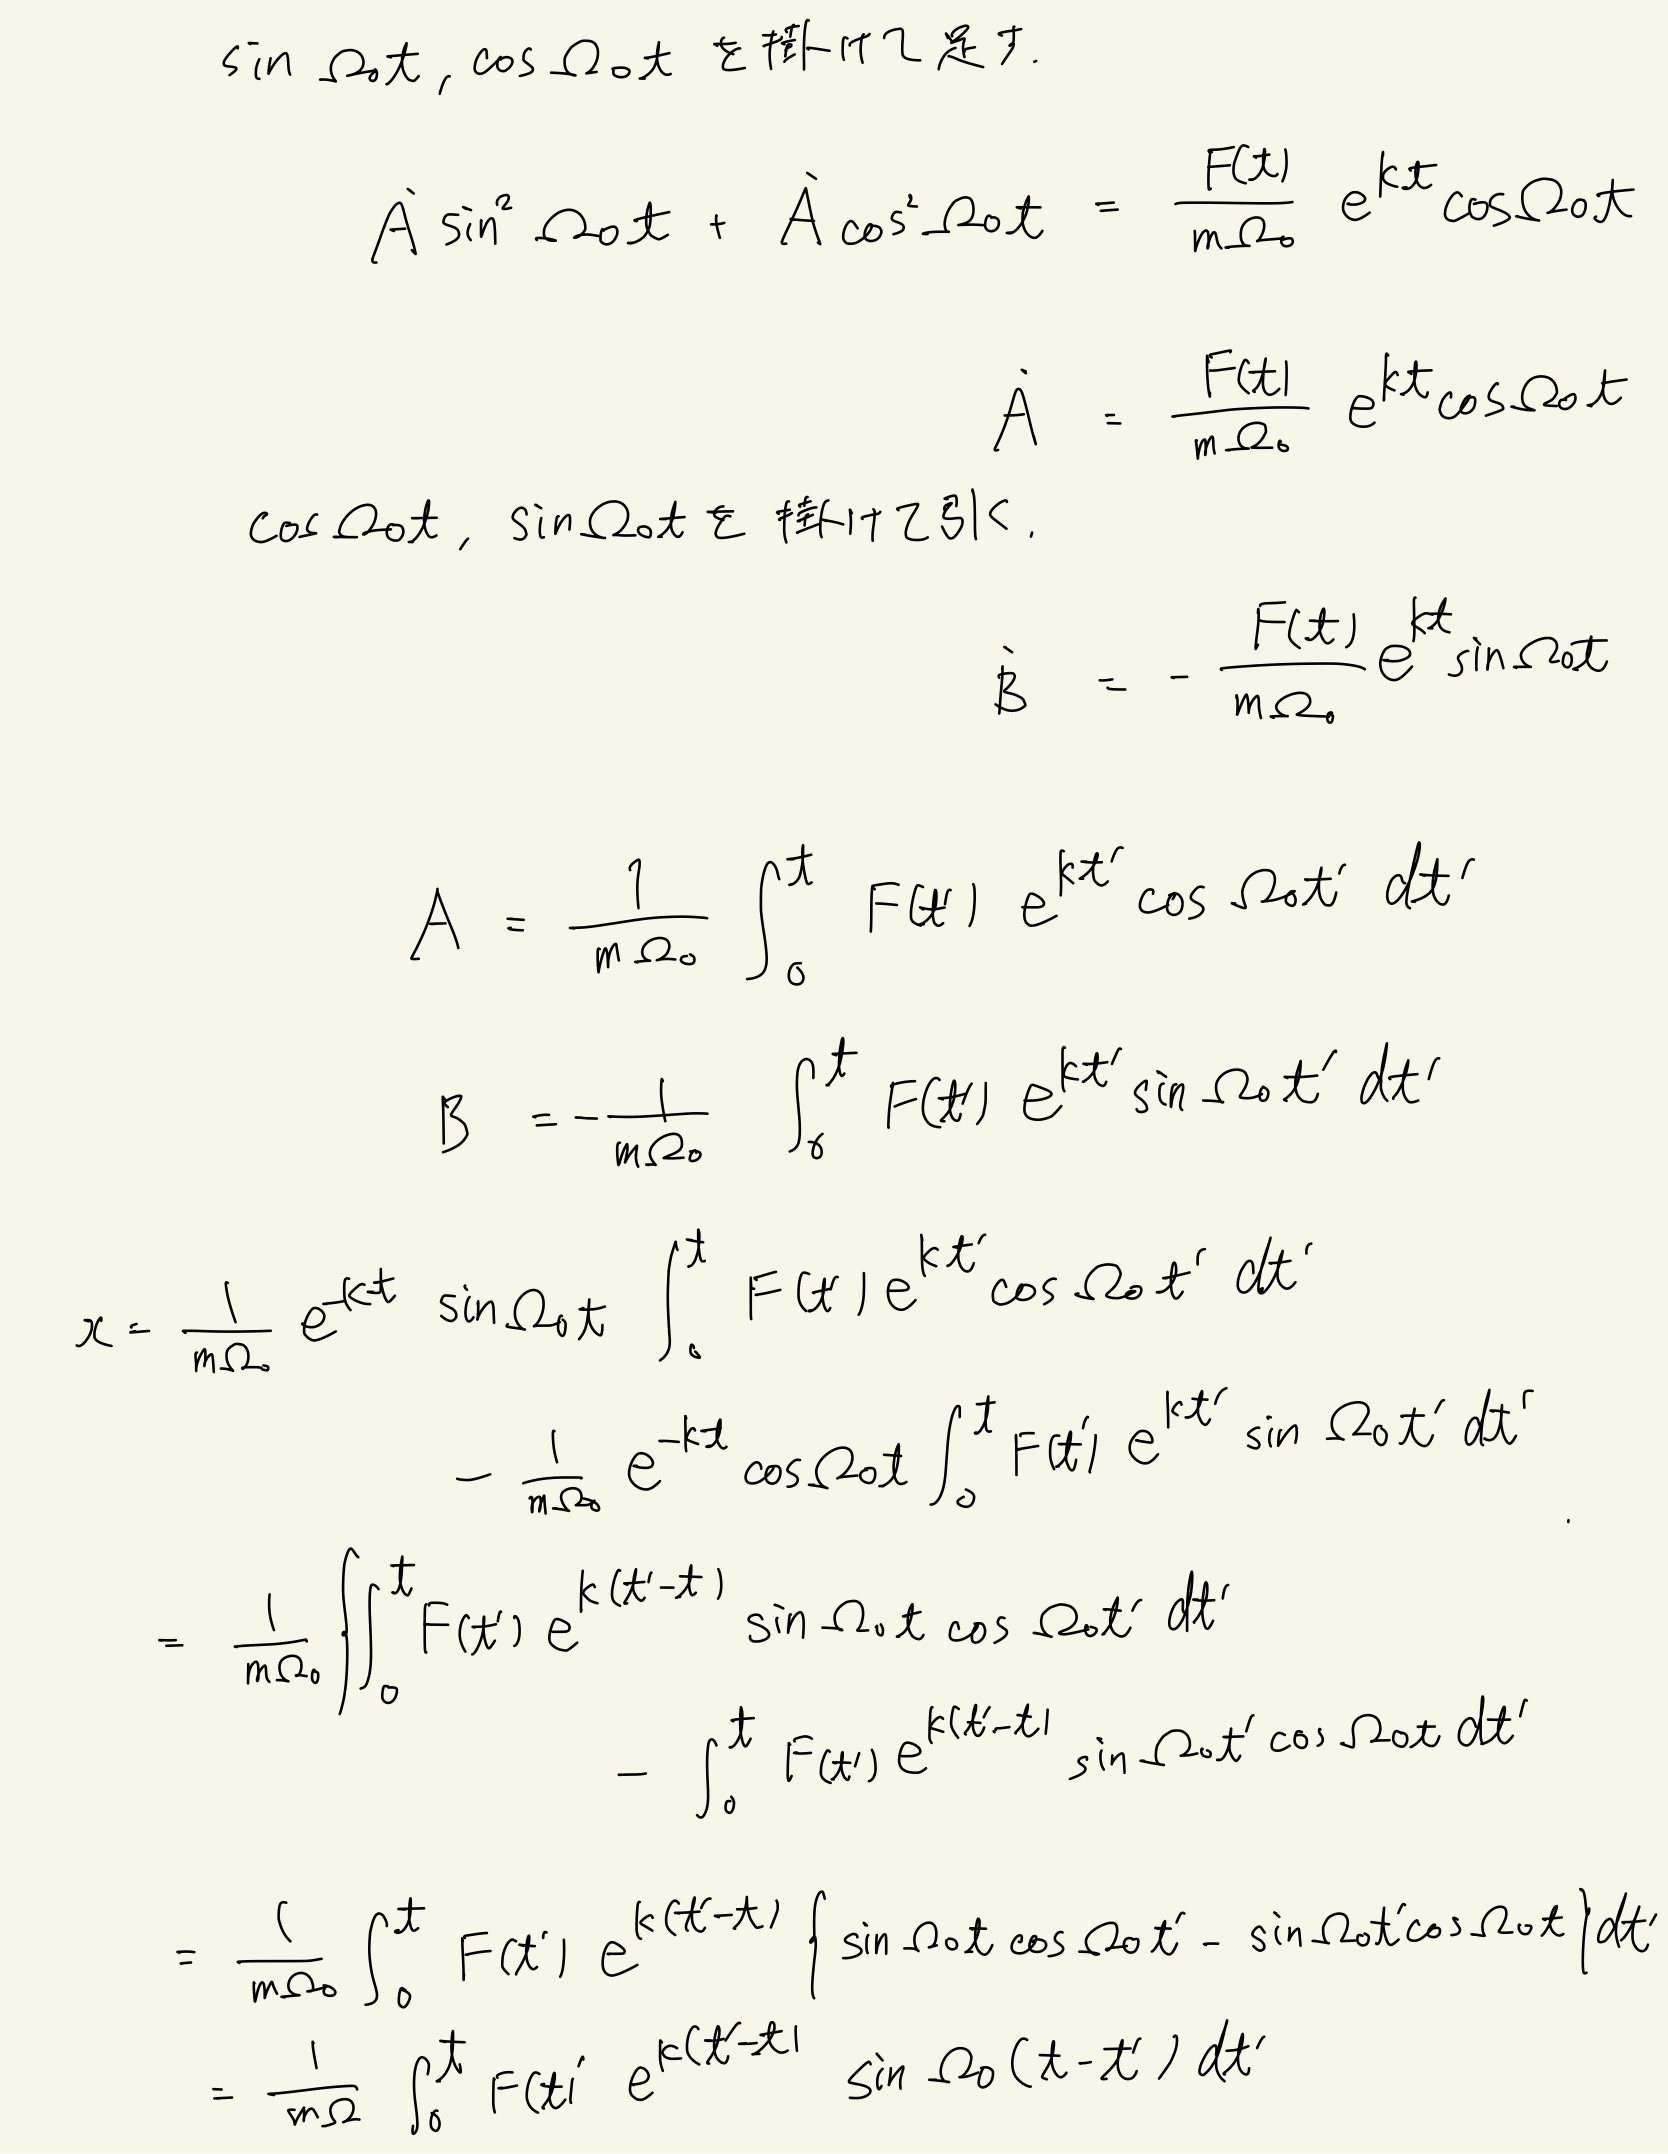 sin Ω₀t, cos Ω₀t を掛けて足す.
Ȧ sin² Ω₀t + Ȧ cos² Ω₀t = F(t)/mΩ₀ e^{kt} cos Ω₀t
Ȧ = F(t)/mΩ₀ e^{kt} cos Ω₀t
cos Ω₀t, sin Ω₀t を掛けて引く.
Ḃ = - F(t)/mΩ₀ e^{kt} sin Ω₀t
A = 1/mΩ₀ ∫₀^t F(t') e^{kt'} cos Ω₀t' dt'
B = - 1/mΩ₀ ∫₀^t F(t') e^{kt'} sin Ω₀t' dt'
x = 1/mΩ₀ e^{-kt} sin Ω₀t ∫₀^t F(t') e^{kt'} cos Ω₀t' dt'
- 1/mΩ₀ e^{-kt} cos Ω₀t ∫₀^t F(t') e^{kt'} sin Ω₀t' dt'
= 1/mΩ₀ { ∫₀^t F(t') e^{k(t'-t)} sin Ω₀t cos Ω₀t' dt'
- ∫₀^t F(t') e^{k(t'-t)} sin Ω₀t' cos Ω₀t dt'
= 1/mΩ₀ ∫₀^t F(t') e^{k(t'-t)} { sin Ω₀t cos Ω₀t' - sin Ω₀t' cos Ω₀t } dt'
= 1/mΩ ∫₀^t F(t)' e^{k(t'-t)} sin Ω₀(t-t') dt'